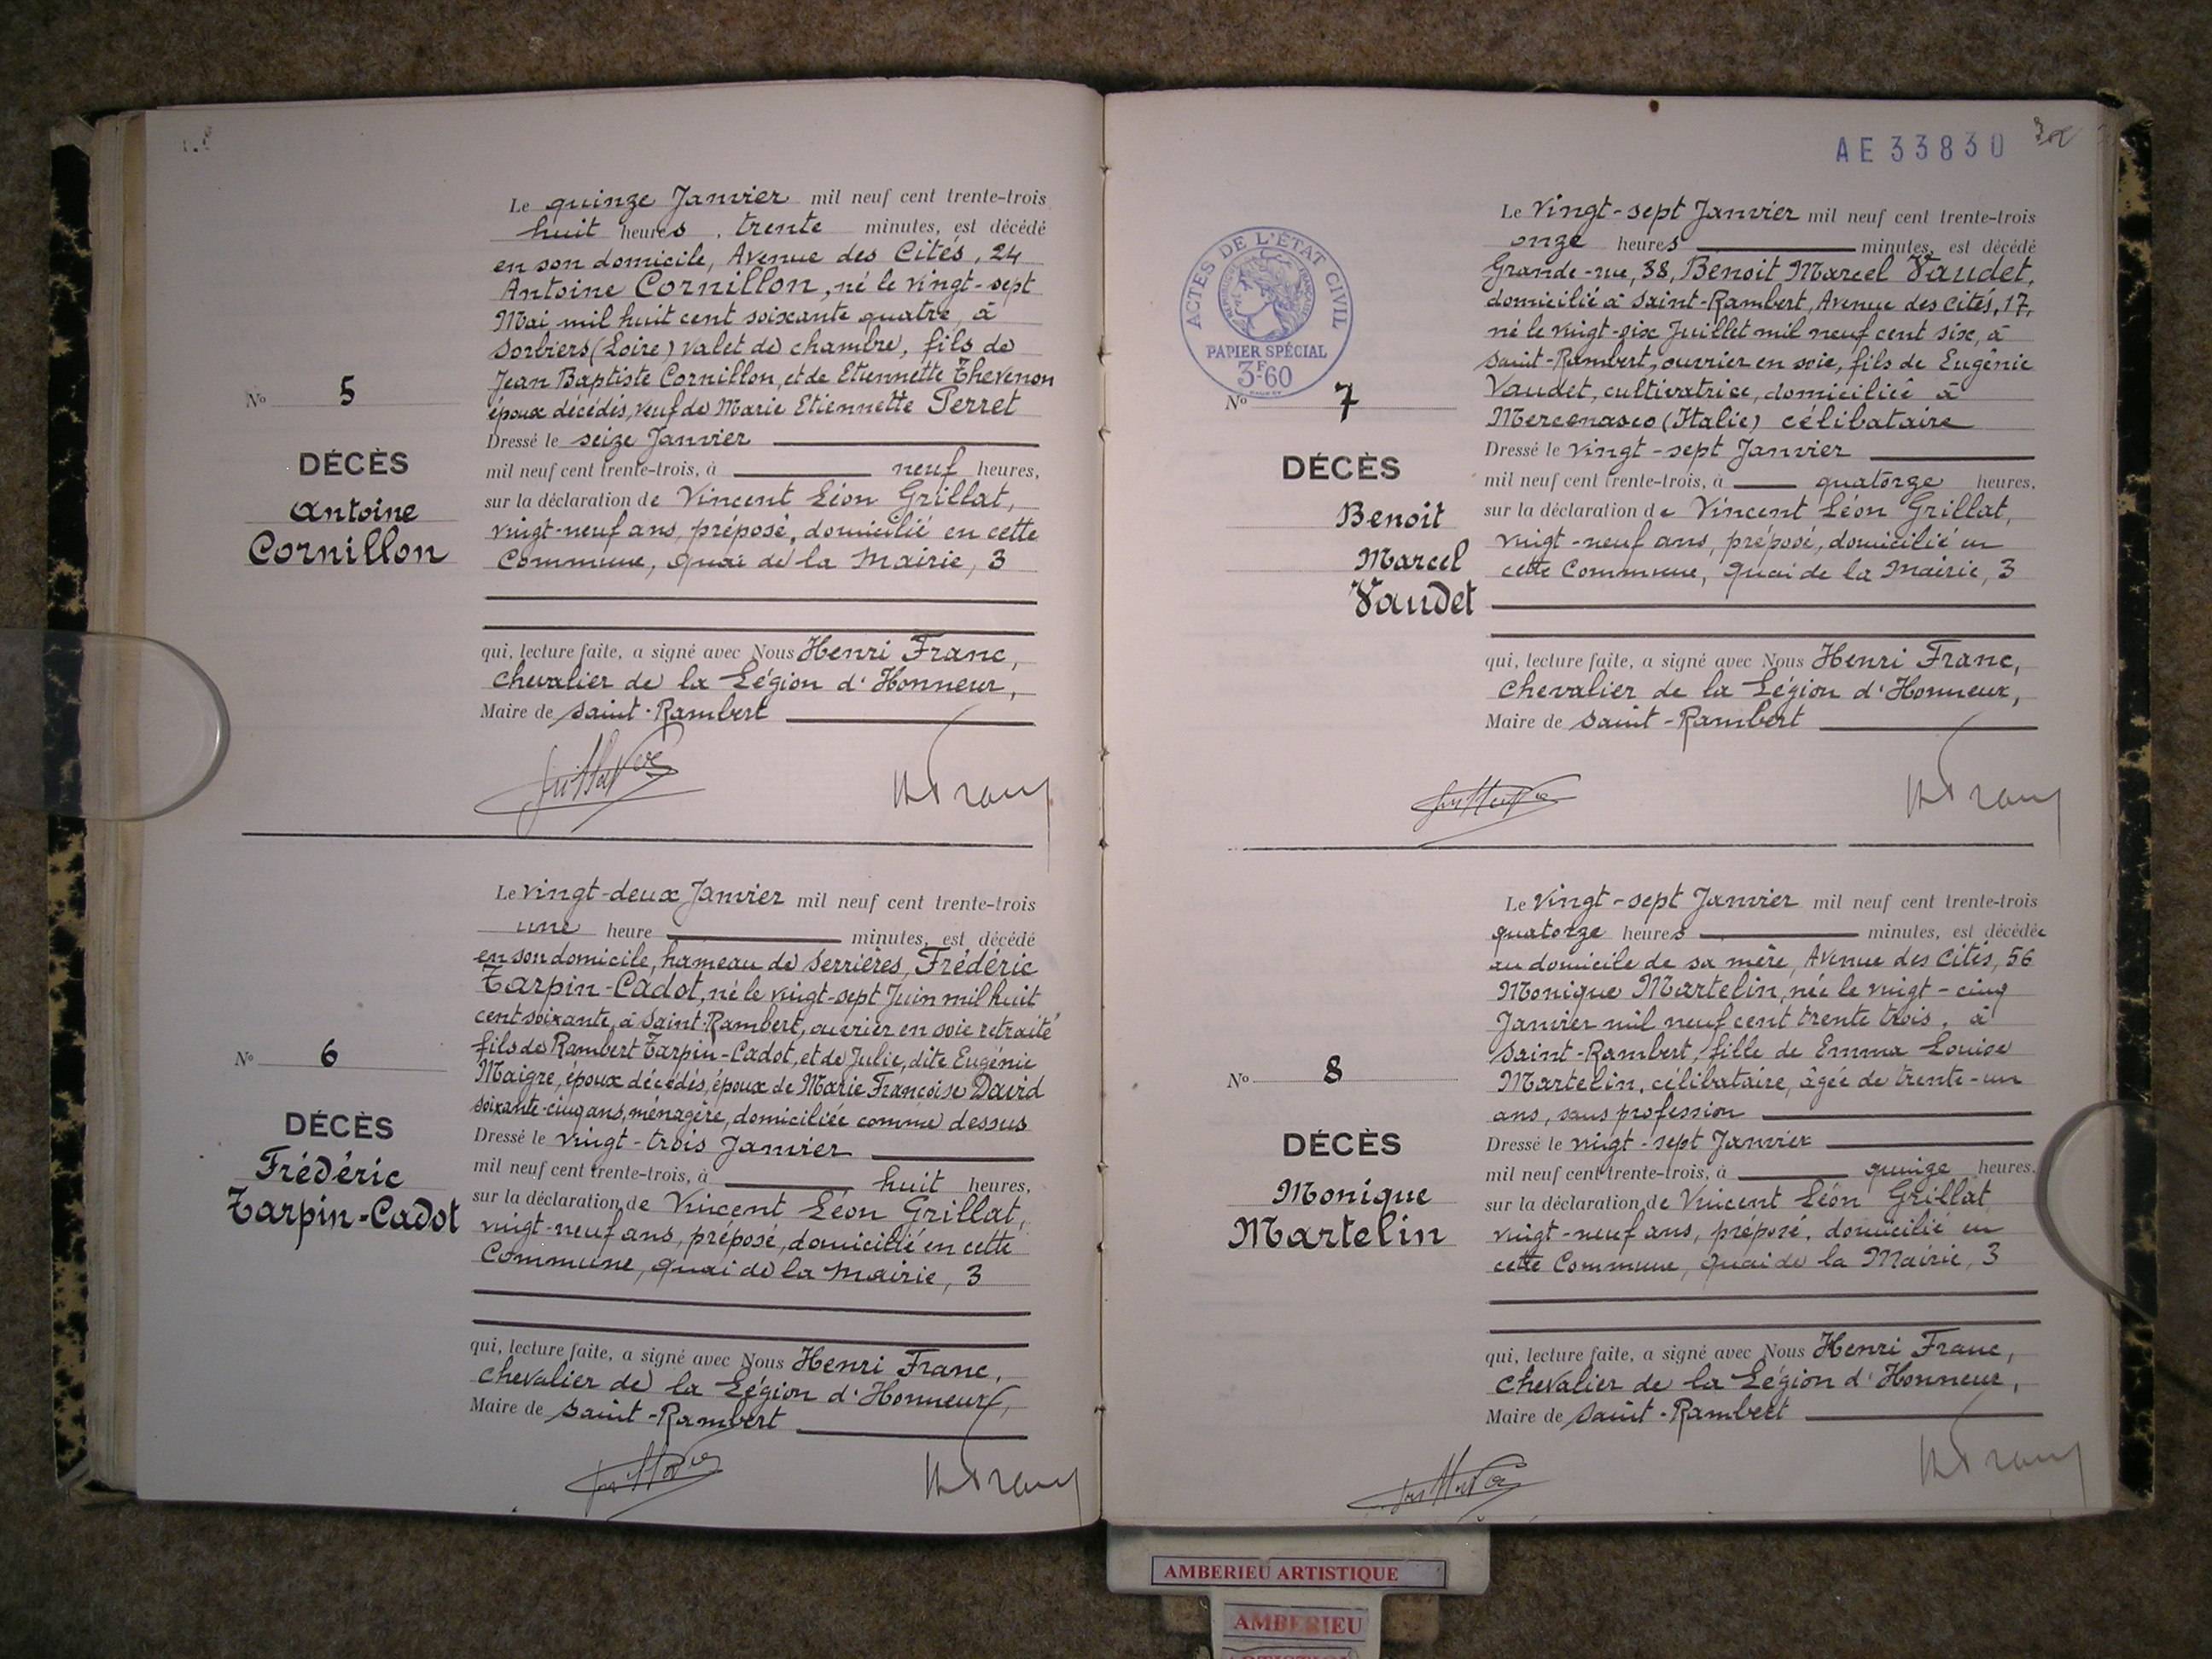 Le quinze Janvier mil neuf cent trente-trois
huit heures, trente minutes, est décédé
en son domicile, Avenue des Cités, 24
Antoine Cornillon, né le vingt-sept
Mai mil huit cent soixante quatre, à
Sorbiers (Loire) valet de chambre, fils de
Jean Baptiste Cornillon, et de Etiennette Thevenon
époux décédés, veuf de Marie Etiennette Perret
Dressé le seize Janvier
mil neuf cent trente-trois, à neuf heures,
sur la déclaration de Vincent Léon Grillat,
vingt-neuf ans, préposé, domicilié en cette
Commune, Quai de la Mairie, 3
qui, lecture faite, a signé avec Nous Henri Franc,
Chevalier de la Légion d'Honneur,
Maire de Saint-Rambert
No 5
DÉCÈS
Antoine
Cornillon
Le vingt-deux Janvier mil neuf cent trente-trois
une heure minutes, est décédé
en son domicile, hameau de Serrières, Frédéric
Tarpin-Cadot, né le vingt-sept Juin mil huit
cent soixante, à Saint-Rambert, ouvrier en soie retraité
fils de Rambert Tarpin-Cadot, et de Julie, dite Eugénie
Maigre, époux décédés, époux de Marie Françoise David
soixante-cinq ans, ménagère, domiciliée comme dessus
Dressé le vingt-trois Janvier
mil neuf cent trente-trois, à huit heures,
sur la déclaration de Vincent Léon Grillat,
vingt-neuf ans, préposé, domicilié en cette
Commune, Quai de la Mairie, 3
qui, lecture faite, a signé avec Nous Henri Franc,
Chevalier de la Légion d'Honneur,
Maire de Saint-Rambert
No 6
DÉCÈS
Frédéric
Tarpin-Cadot
AE 33830
ACTES DE L'ÉTAT CIVIL
PAPIER SPÉCIAL
3F60
Le vingt-sept Janvier mil neuf cent trente-trois
onze heures minutes, est décédé
Grande-rue, 38, Benoit Marcel Vaudet,
domicilié à Saint-Rambert, Avenue des Cités, 17,
né le vingt-six Juillet mil neuf cent six, à
Saint-Rambert, ouvrier en soie, fils de Eugénie
Vaudet, cultivatrice, domiciliée à
Mercenasco (Italie) célibataire
Dressé le vingt-sept Janvier
mil neuf cent trente-trois, à quatorze heures,
sur la déclaration de Vincent Léon Grillat,
vingt-neuf ans, préposé, domicilié en
cette Commune, Quai de la Mairie, 3
qui, lecture faite, a signé avec Nous Henri Franc,
Chevalier de la Légion d'Honneur,
Maire de Saint-Rambert
No 7
DÉCÈS
Benoit
Marcel
Vaudet
Le vingt-sept Janvier mil neuf cent trente-trois
quatorze heures minutes, est décédée
au domicile de sa mère, Avenue des Cités, 56
Monique Martelin, née le vingt-cinq
Janvier mil neuf cent trente trois, à
Saint-Rambert, fille de Emma Louise
Martelin, célibataire, âgée de trente-un
ans, sans profession
Dressé le vingt-sept Janvier
mil neuf cent trente-trois, à quinze heures,
sur la déclaration de Vincent Léon Grillat
vingt-neuf ans, préposé, domicilié en
cette Commune, Quai de la Mairie, 3
qui, lecture faite, a signé avec Nous Henri Franc,
Chevalier de la Légion d'Honneur,
Maire de Saint-Rambert
No 8
DÉCÈS
Monique
Martelin
AMBERIEU ARTISTIQUE
AMBERIEU
ARTISTIQUE